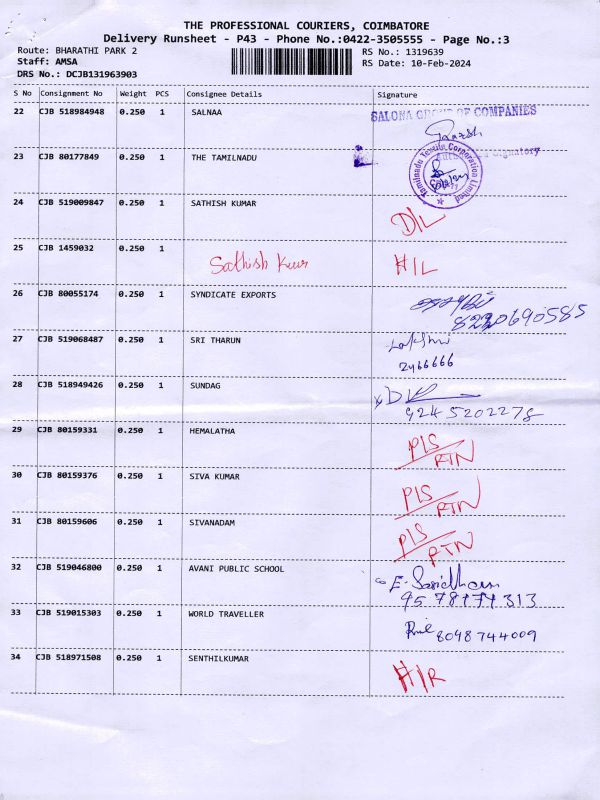 THE PROFESSIONAL COURIERS, COIMBATORE
Delivery Runsheet - P43 - Phone No.:0422-3505555 - Page No.:3
Route: BHARATHI PARK 2
RS No.: 1319639
Staff: AMSA
RS Date: 10-Feb-2024
DRS No.: DCJB131963903
S No Consignment No Weight PCS Consignee Details Signature
22 CJB 518984948 0.250 1 SALNAA SALONA GROUP OF COMPANIES
23 CJB 80177849 0.250 1 THE TAMILNADU Authorised Signatory
Tamilnadu Textile Corporation Limited
24 CJB 519009847 0.250 1 SATHISH KUMAR D/L
25 CJB 1459032 0.250 1 Sathish Kum H/L
26 CJB 80055174 0.250 1 SYNDICATE EXPORTS
8220690585
27 CJB 519068487 0.250 1 SRI THARUN Lakshmi
2466666
28 CJB 518949426 0.250 1 SUNDAG
9245202278
29 CJB 80159331 0.250 1 HEMALATHA P/S
RTN
30 CJB 80159376 0.250 1 SIVA KUMAR P/S
RTN
31 CJB 80159606 0.250 1 SIVANADAM P/S
RTN
32 CJB 519046800 0.250 1 AVANI PUBLIC SCHOOL
9578174313
33 CJB 519015303 0.250 1 WORLD TRAVELLER 8098744009
34 CJB 518971508 0.250 1 SENTHILKUMAR H/R